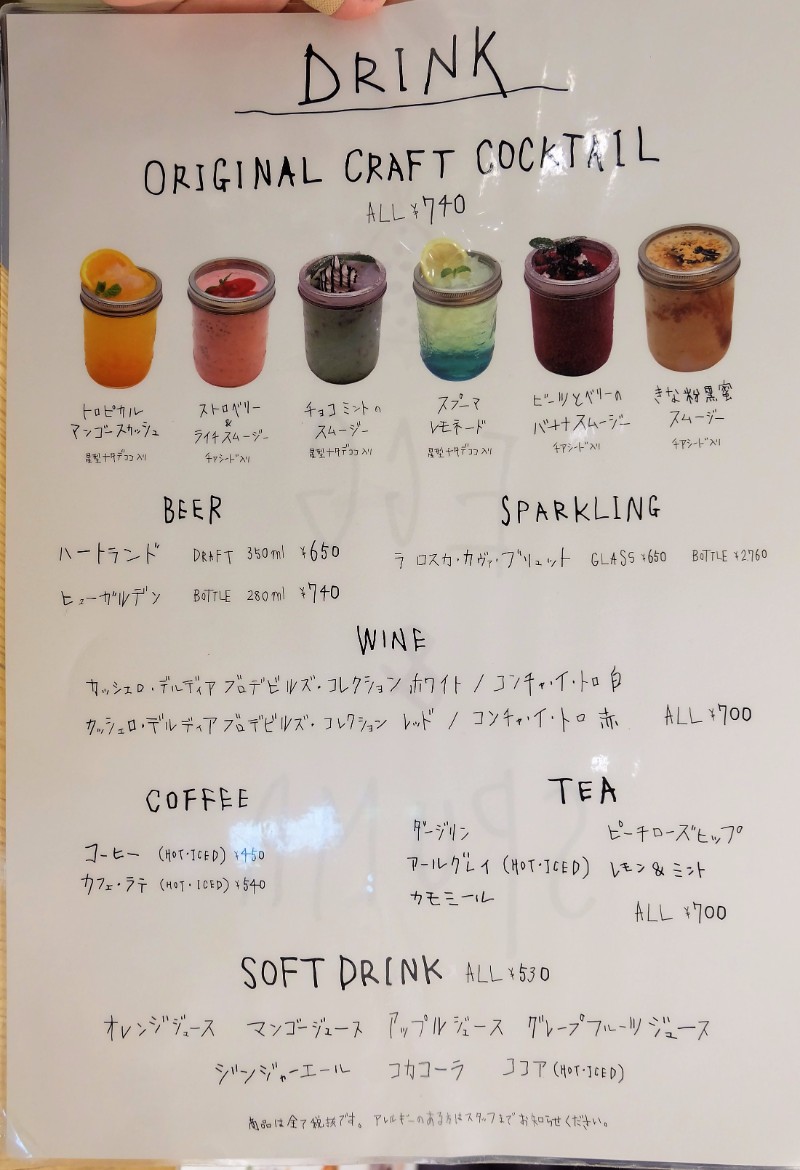 DRINK
ORIGINAL CRAFT COCKTAIL
ALL ¥740
トロピカル
マンゴースカッシュ
星型ナタデココ入り
ストロベリー
&
ライチスムージー
チアシード入り
チョコミントの
スムージー
星型ナタデココ入り
スプーマ
レモネード
星型ナタデココ入り
ビーツとベリーの
バナナスムージー
チアシード入り
きな粉黒蜜
スムージー
チアシード入り
BEER
ハートランド DRAFT 350ml ¥650
ヒューガルデン BOTTLE 280ml ¥740
SPARKLING
ラ ロスカ・カヴァ・ブリュット GLASS ¥650 BOTTLE ¥2760
WINE
カッシェロ・デルディアブロデビルズ・コレクション ホワイト / コンチャ・イ・トロ 白
カッシェロ・デルディアブロデビルズ・コレクション レッド / コンチャ・イ・トロ 赤 ALL ¥700
COFFEE
コーヒー (HOT・ICED) ¥450
カフェ・ラテ (HOT・ICED) ¥540
TEA
ダージリン ピーチローズヒップ
アールグレイ (HOT・ICED) レモン&ミント
カモミール
ALL ¥700
SOFT DRINK ALL ¥530
オレンジジュース マンゴージュース アップルジュース グレープフルーツジュース
ジンジャーエール コカコーラ ココア (HOT・ICED)
商品は全て税抜です。アレルギーのある方はスタッフまでお知らせください。